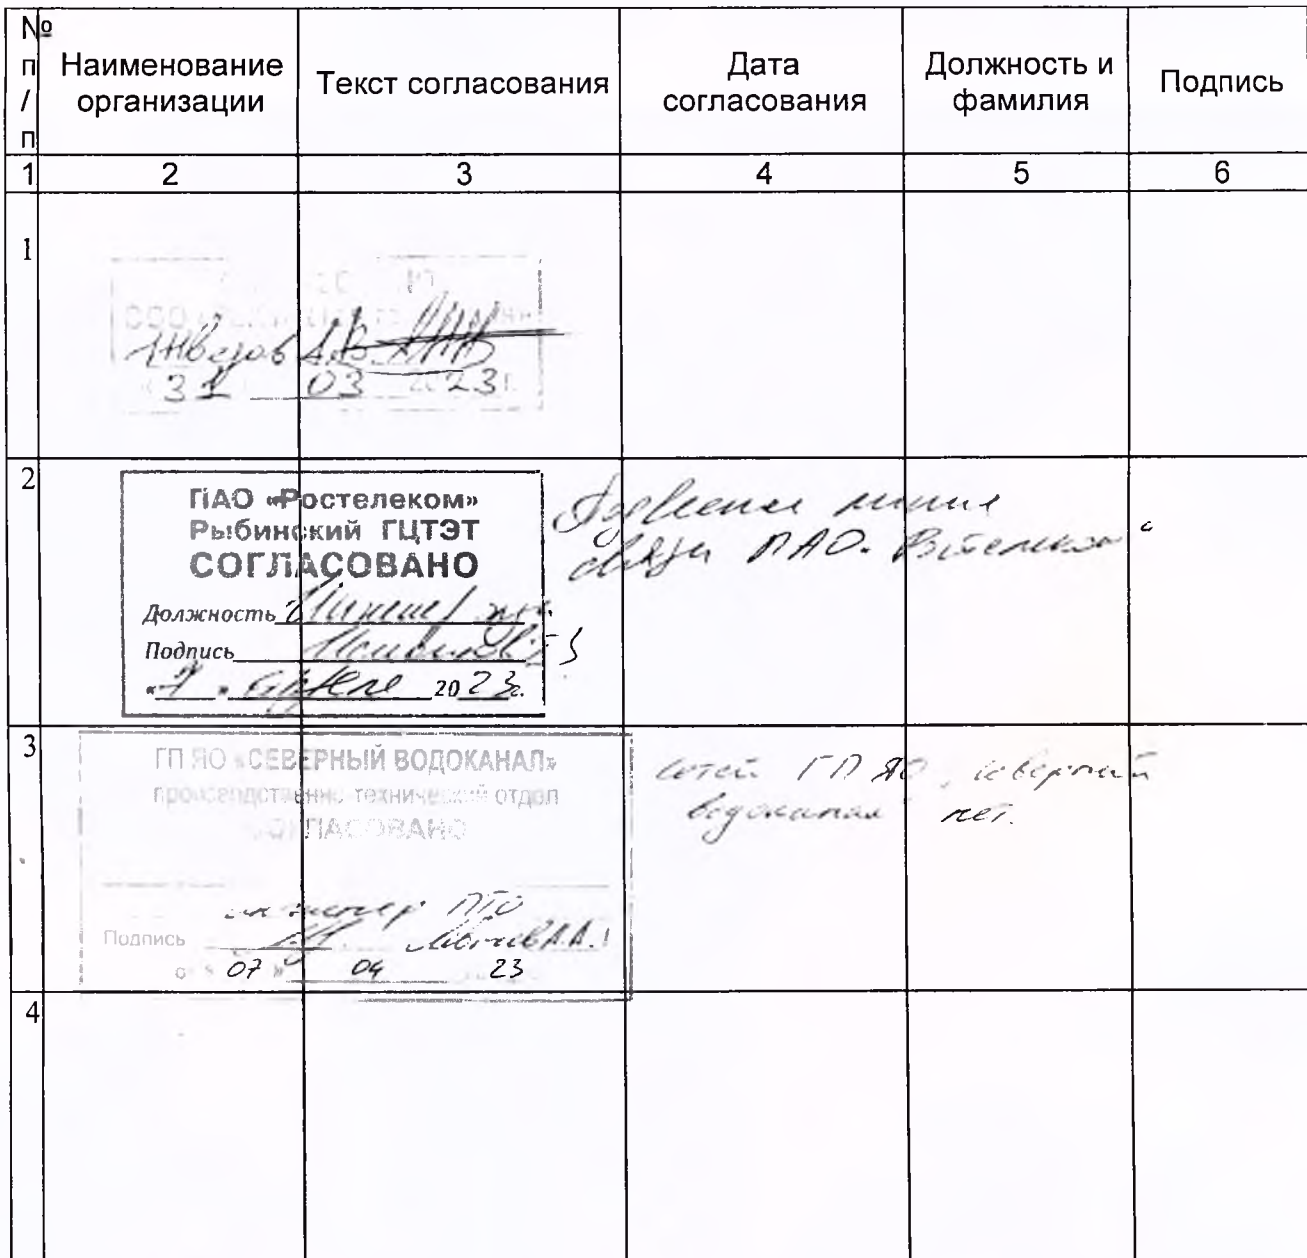 № п/п
Наименование организации
Текст согласования
Дата согласования
Должность и фамилия
Подпись
1 2 3 4 5 6
1
ООО
31 03 23г.
2
ПАО «Ростелеком»
Рыбинский ГЦТЭТ
СОГЛАСОВАНО
Должность
Подпись
«7» апреля 2023г.
линия
связи ПАО "Ростелеком"
3
ГП ЯО «СЕВЕРНЫЙ ВОДОКАНАЛ»
производственно технический отдел
СОГЛАСОВАНО
инженер ПТО
Подпись А.А.
07 04 23
сетей ГП ЯО "Северный
водоканал" нет.
4